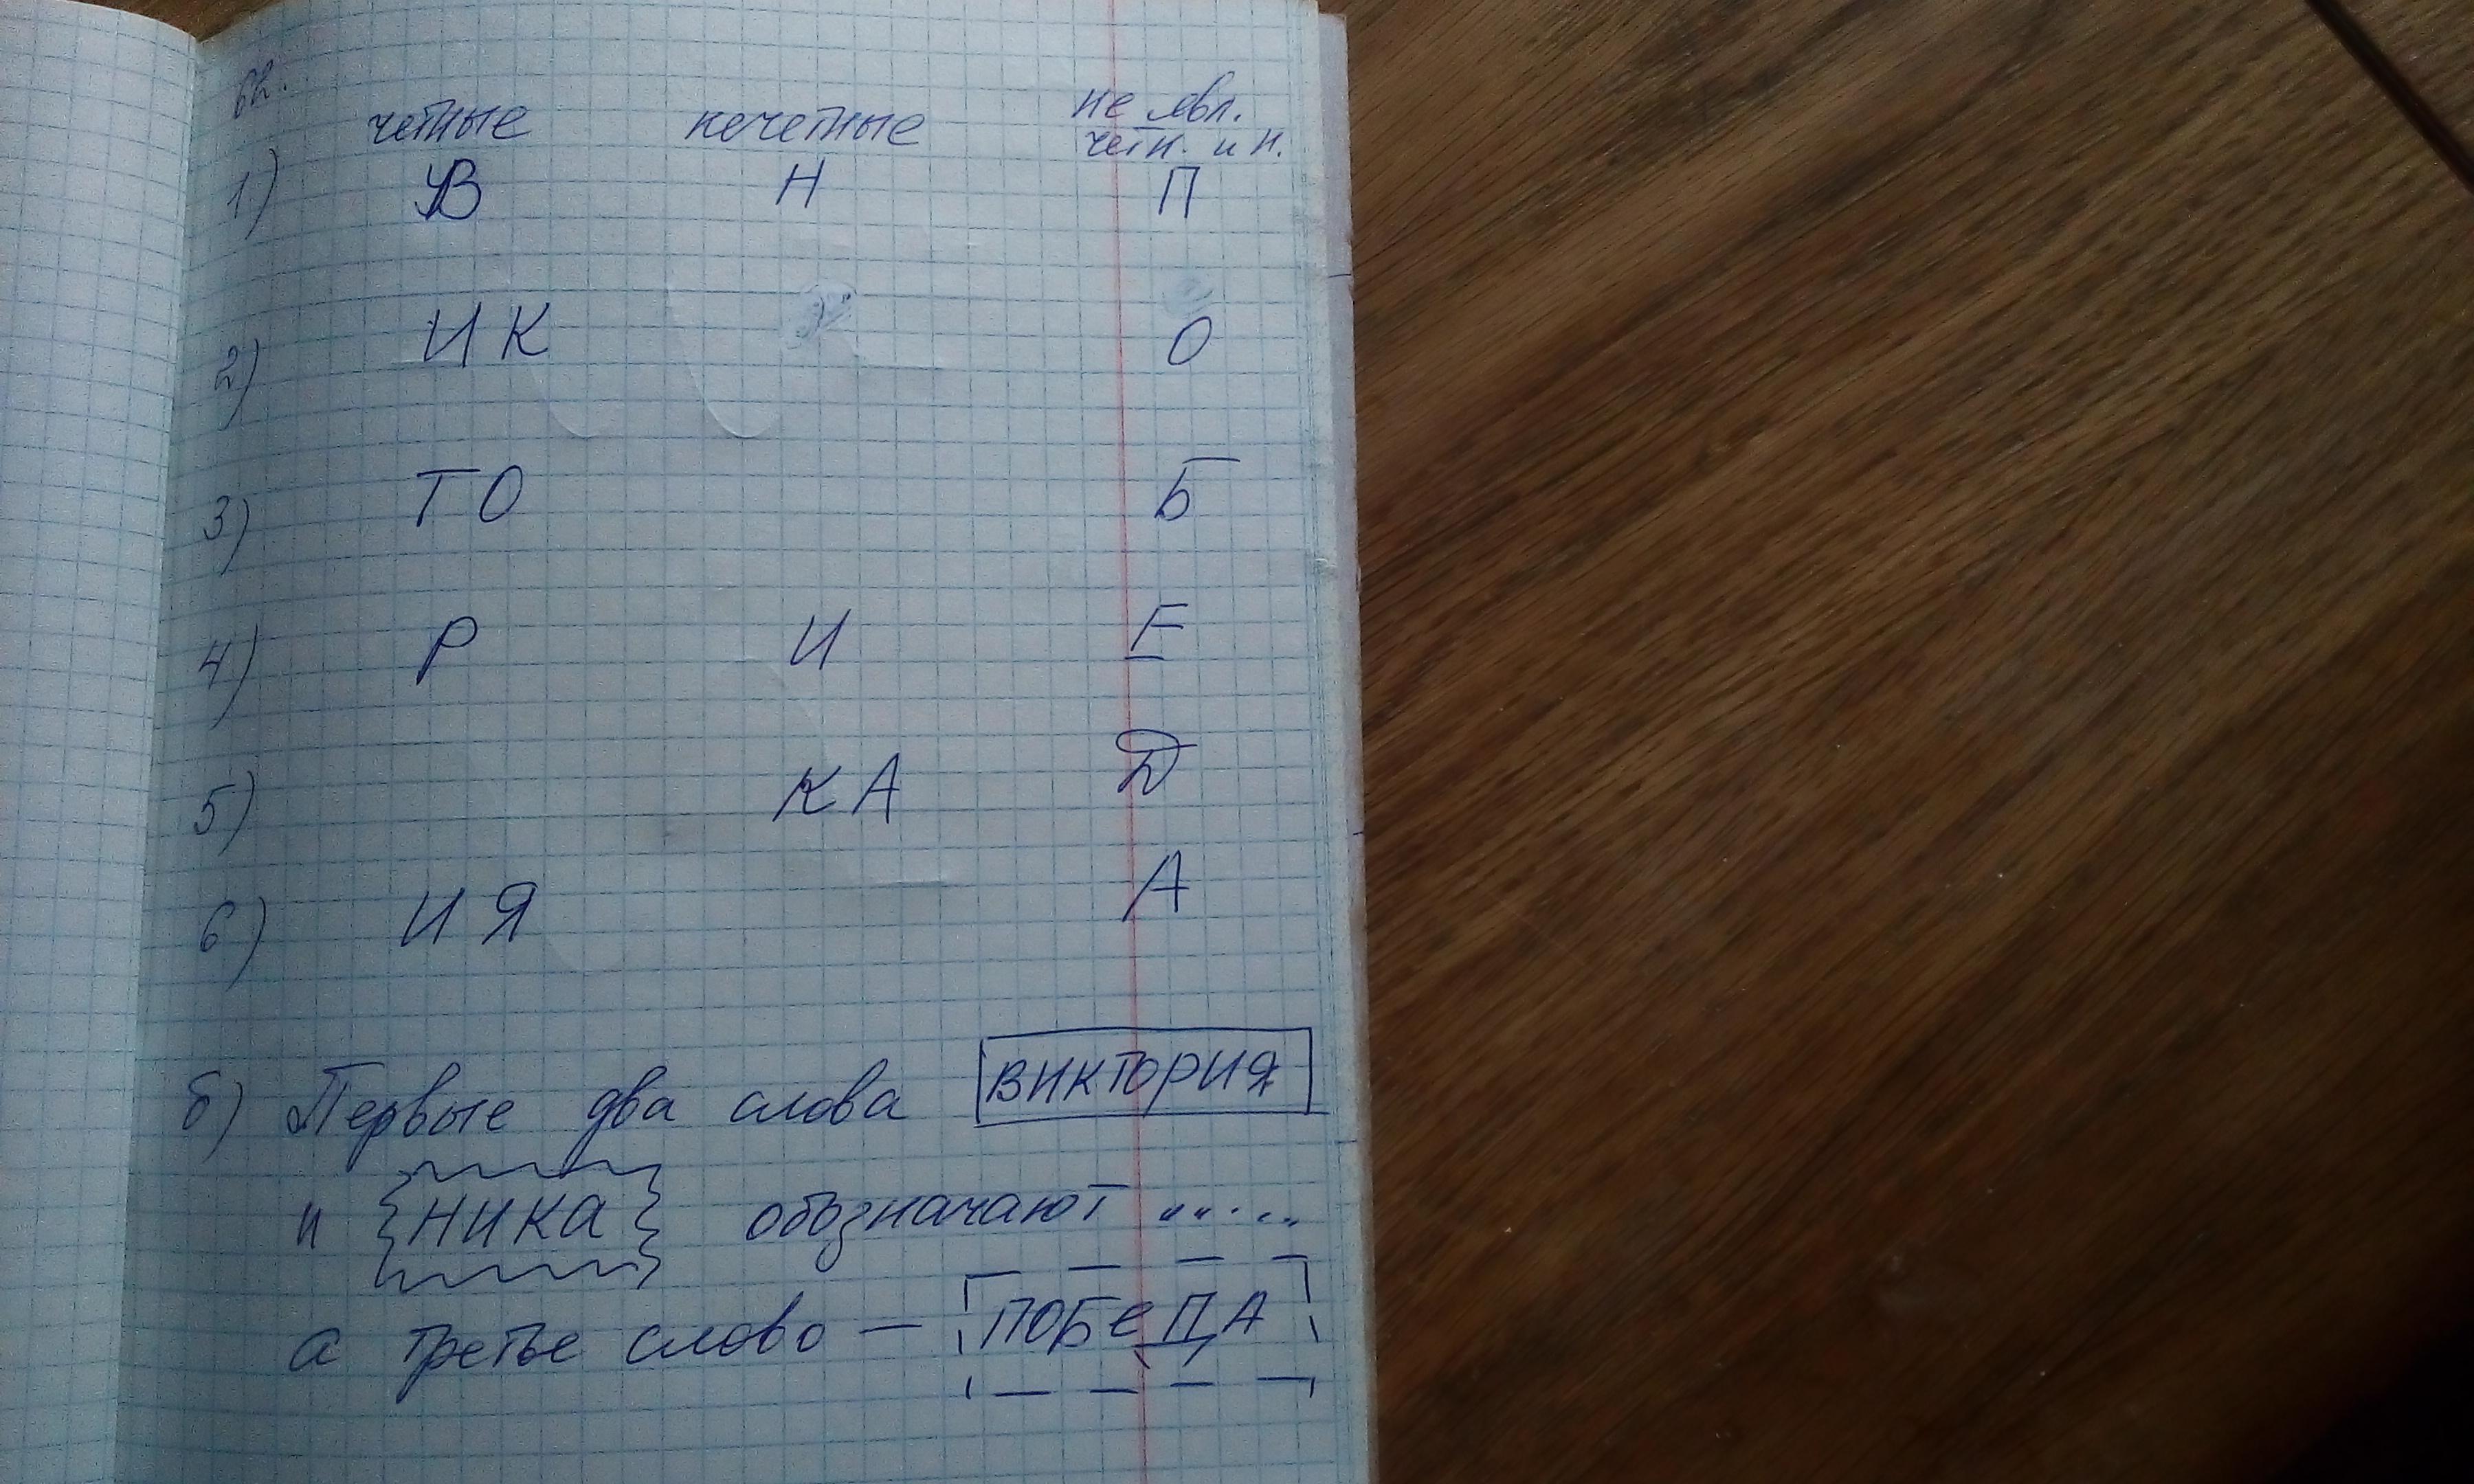 четные нечетные не явл.
четн. и н.
1) В Н П
2) И К О
3) Т О Б
4) Р И Е
5) К А Д
6) И Я А
б) Первые два слова ВИКТОРИЯ
и НИКА обозначают .....
а третье слово — ПОБеДА